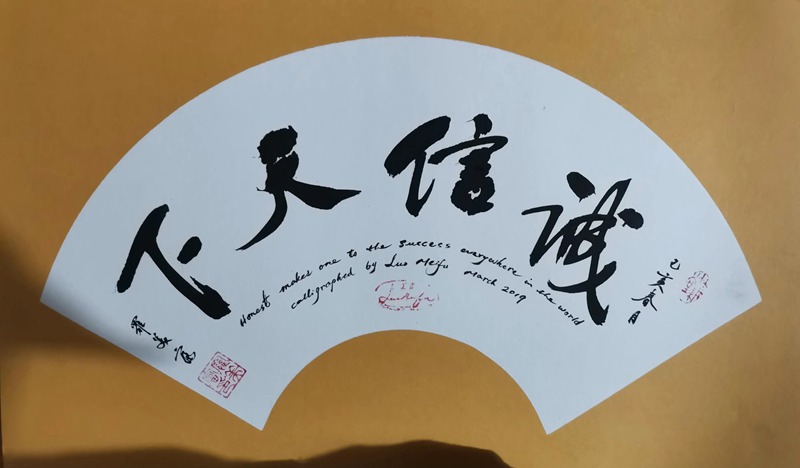 己亥春月
诚信天下
Honest makes one to the success everywhere in the world
calligraphed by Luo Meifu March 2019
羅美富